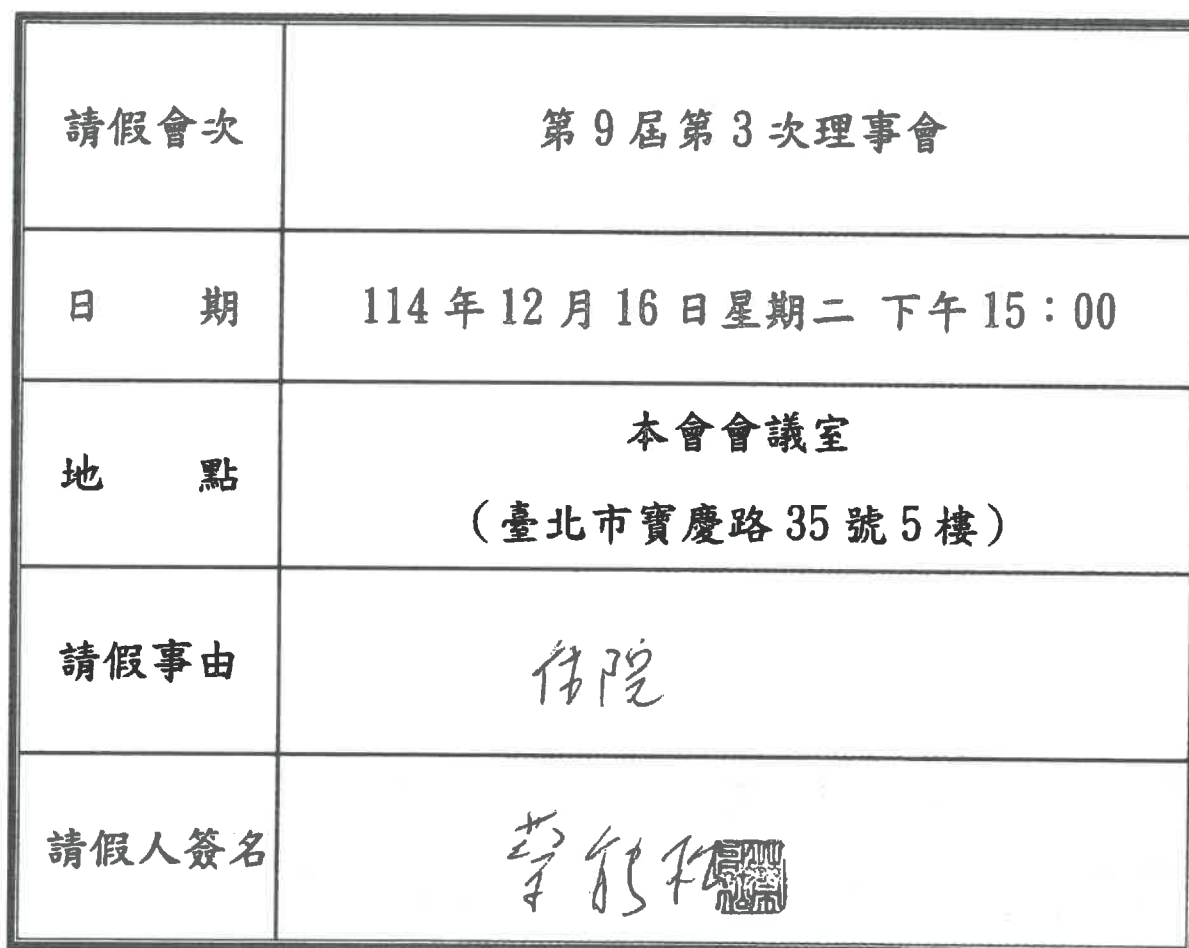 請假會次
第9屆第3次理事會
日期
114年12月16日星期二 下午15：00
地點
本會會議室
（臺北市寶慶路35號5樓）
請假事由
住院
請假人簽名